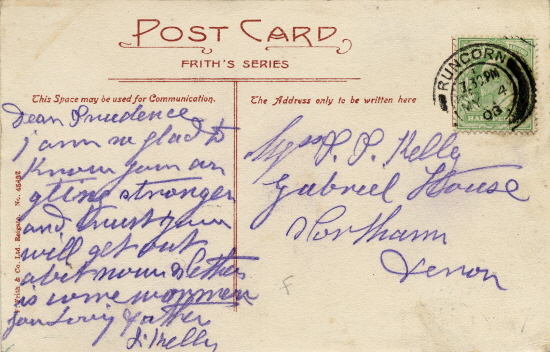 POST CARD
FRITH'S SERIES
This Space may be used for Communication.
The Address only to be written here
Dear Prudence
I am so glad to
know you are
getting stronger
and trust you
will get out
a bit now
is come
your loving father
J. Kelly
P. P. Kelly
Gabriel House
Northam
Devon
RUNCORN
7.30 PM
4
06
No. 45432
Frith & Co. Ltd. Reigate.
F